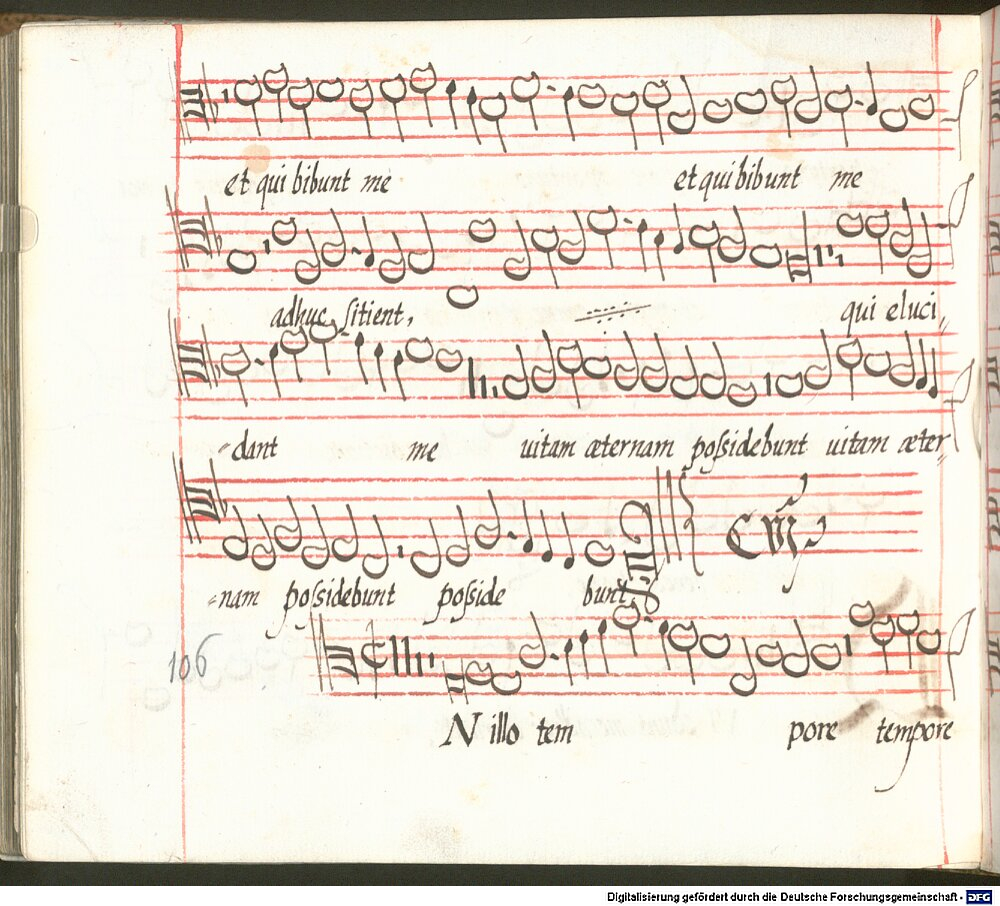 et qui bibunt me et qui bibunt me
adhuc ſitient, qui eluci,,
-dant me uitam æternam poſsidebunt uitam æter-
-nam poſsidebunt poſside bunt
106
N illo tem pore tempore
Digitalisierung gefördert durch die Deutsche Forschungsgemeinschaft - DFG